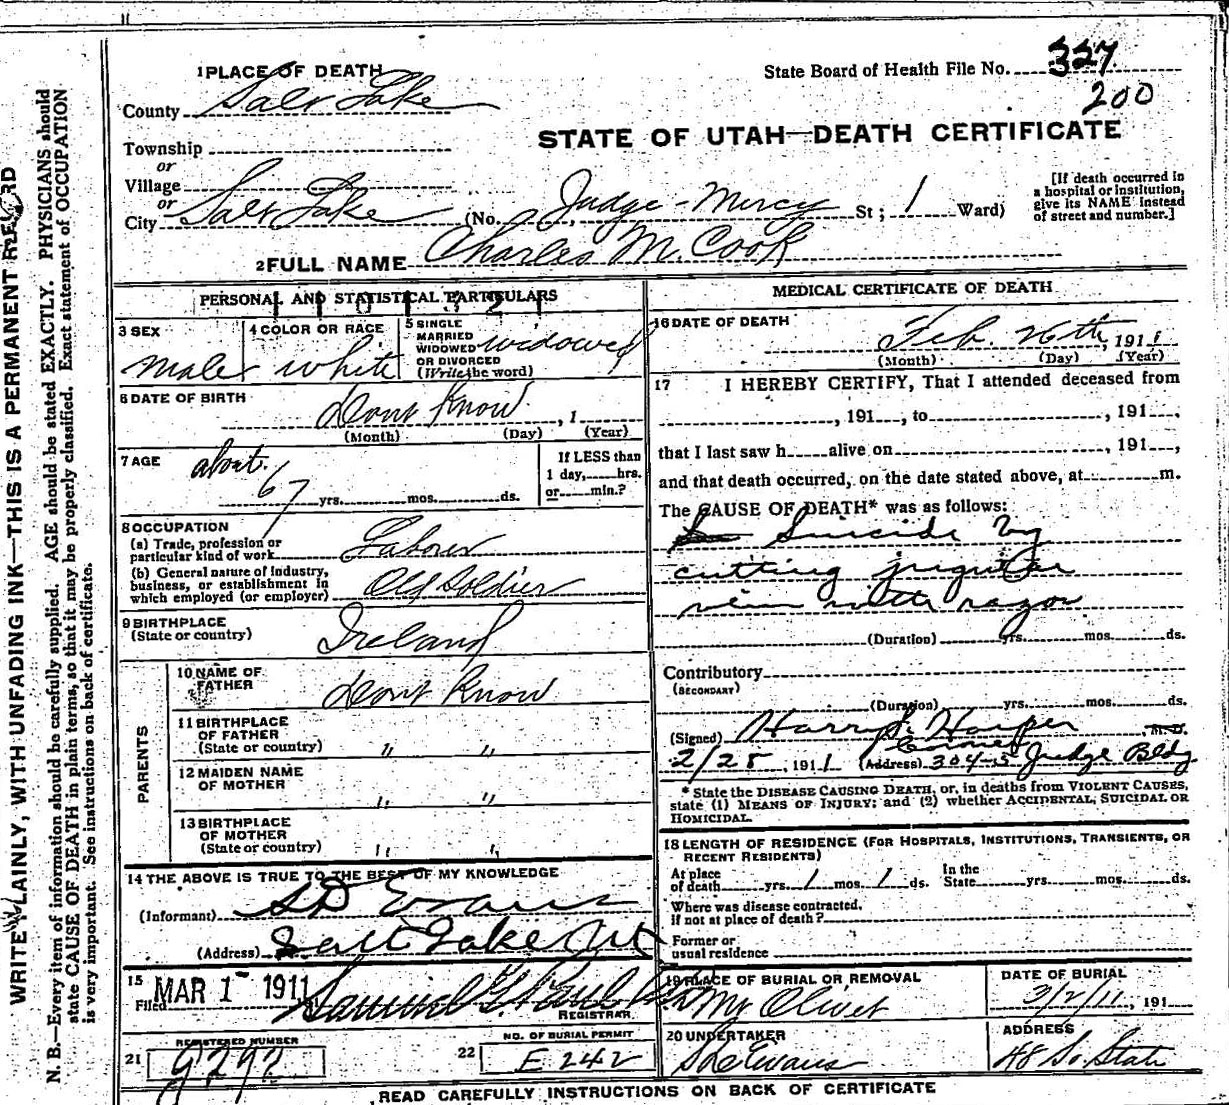 1 PLACE OF DEATH
State Board of Health File No. 327
200
County Salt Lake
STATE OF UTAH—DEATH CERTIFICATE
Township
or
Village
or
City Salt Lake (No. Judge-Mercy St; 1 Ward)
[If death occurred in a hospital or institution, give its NAME instead of street and number.]
2 FULL NAME Charles M. Cook
PERSONAL AND STATISTICAL PARTICULARS
3 SEX
male
4 COLOR OR RACE
white
5 SINGLE
MARRIED
WIDOWED
OR DIVORCED
(Write the word)
widowed
6 DATE OF BIRTH
dont know, 1
(Month) (Day) (Year)
7 AGE
about
67 yrs. mos. ds.
If LESS than
1 day, hrs.
or min.?
8 OCCUPATION
(a) Trade, profession or
particular kind of work Laborer
(b) General nature of industry,
business, or establishment in
which employed (or employer) Old Soldier
9 BIRTHPLACE
(State or country) Ireland
PARENTS
10 NAME OF
FATHER dont know
11 BIRTHPLACE
OF FATHER
(State or country) " "
12 MAIDEN NAME
OF MOTHER " "
13 BIRTHPLACE
OF MOTHER
(State or country) " "
14 THE ABOVE IS TRUE TO THE BEST OF MY KNOWLEDGE
(Informant) S D Evans
(Address) Salt Lake Ut
15
Filed MAR 1 1911 Samuel G. Paul
REGISTRAR
REGISTERED NUMBER
21 9297
NO. OF BURIAL PERMIT
22 E 242
MEDICAL CERTIFICATE OF DEATH
16 DATE OF DEATH
Feb. 26th, 1911
(Month) (Day) (Year)
17 I HEREBY CERTIFY, That I attended deceased from
, 191 , to , 191 ,
that I last saw h alive on , 191 ,
and that death occurred, on the date stated above, at m.
The CAUSE OF DEATH* was as follows:
Suicide by
cutting jugular
vein with razor
(Duration) yrs. mos. ds.
Contributory
(SECONDARY)
(Duration) yrs. mos. ds.
(Signed) Harry S. Harper M. D.
Coroner
2/28, 1911 (Address) 304-5 Judge Bldg
* State the DISEASE CAUSING DEATH, or, in deaths from VIOLENT CAUSES,
state (1) MEANS OF INJURY; and (2) whether ACCIDENTAL, SUICIDAL OR
HOMICIDAL.
18 LENGTH OF RESIDENCE (FOR HOSPITALS, INSTITUTIONS, TRANSIENTS, OR
RECENT RESIDENTS)
At place
of death yrs. 1 mos. 1 ds.
In the
State yrs. mos. ds.
Where was disease contracted,
if not at place of death?
Former or
usual residence
19 PLACE OF BURIAL OR REMOVAL
Mt Olivet
DATE OF BURIAL
3/2/11, 191
20 UNDERTAKER
S D Evans
ADDRESS
48 So. State
READ CAREFULLY INSTRUCTIONS ON BACK OF CERTIFICATE
WRITE PLAINLY, WITH UNFADING INK—THIS IS A PERMANENT RECORD
N. B.—Every item of information should be carefully supplied. AGE should be stated EXACTLY. PHYSICIANS should
state CAUSE OF DEATH in plain terms, so that it may be properly classified. Exact statement of OCCUPATION
is very important. See instructions on back of certificate.